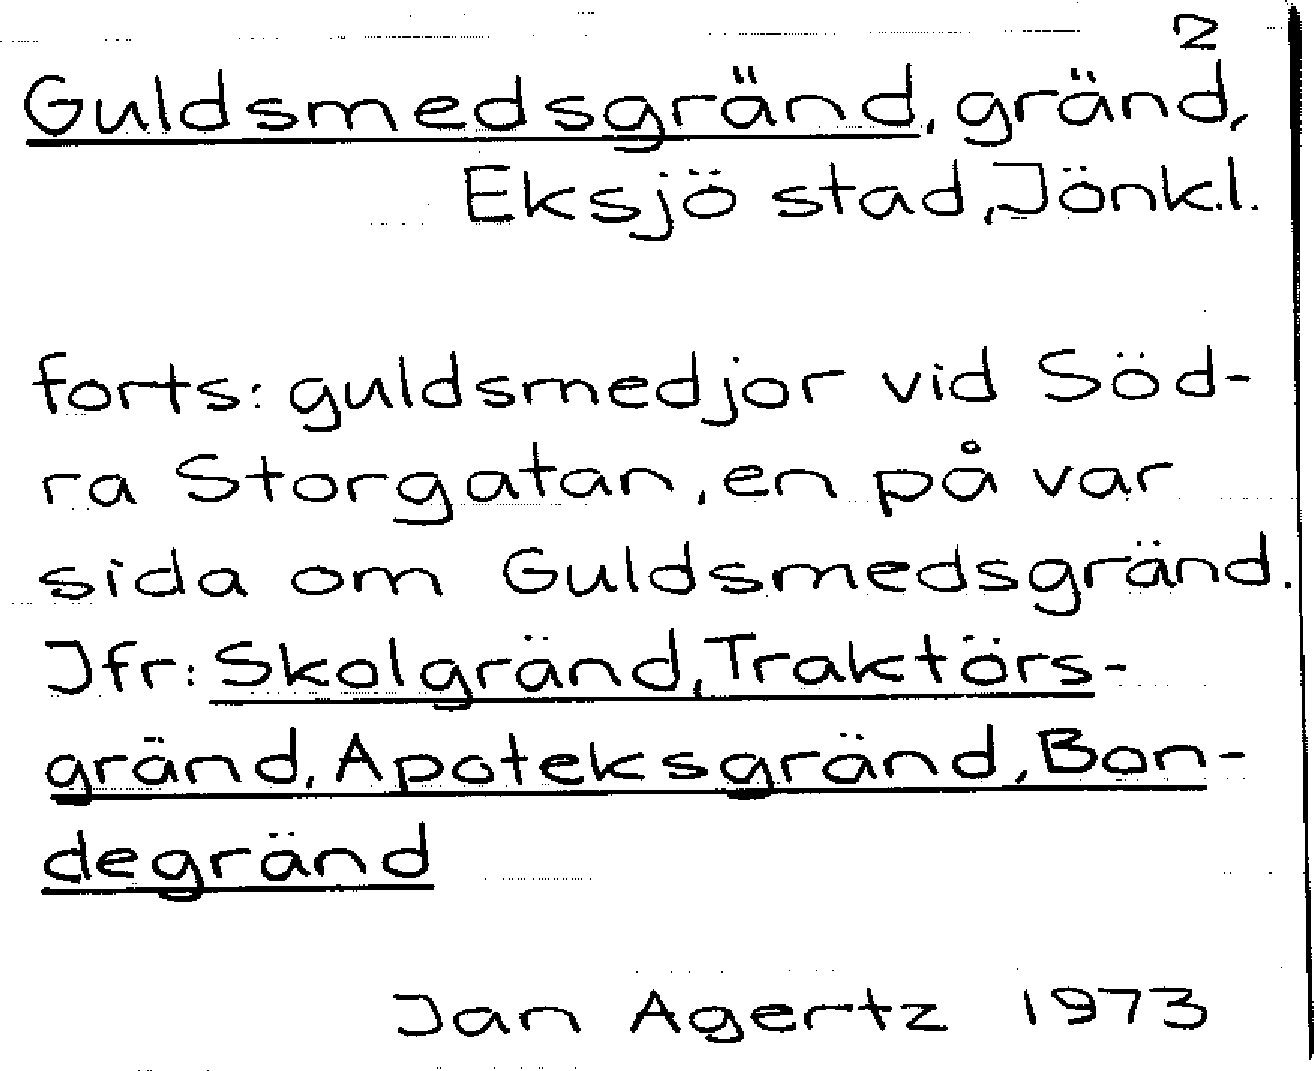 2
Guldsmedsgränd, gränd,
Eksjö stad, Jönk.l.
forts: guldsmedjor vid Söd-
ra Storgatan, en på var
sida om Guldsmedsgränd.
Jfr: Skolgränd, Traktörs-
gränd, Apoteksgränd, Bon-
degränd
Jan Agertz 1973